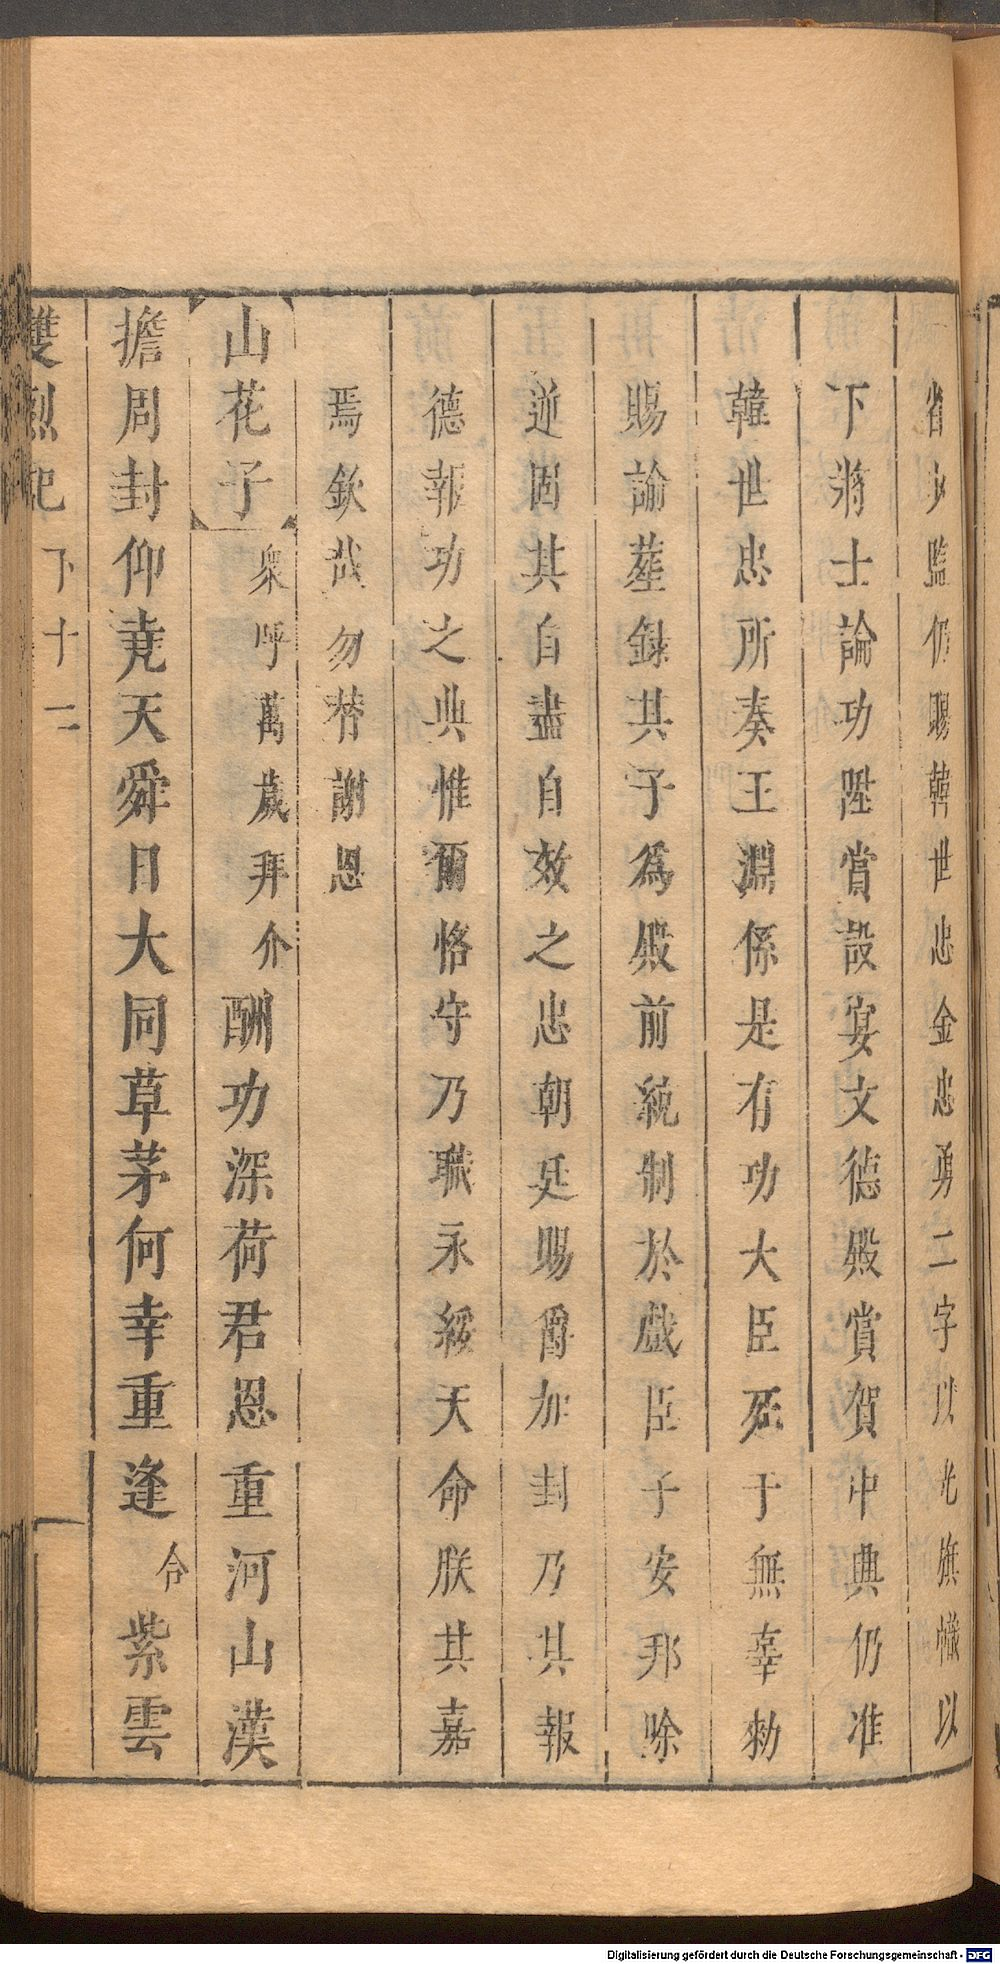 省少監仍賜韓世忠金忠勇二字以光旗幟以
下將士論功陞賞設宴文德殿賞賀中興仍准
韓世忠所奏王淵係是有功大臣死于無辜勑
賜諭塟録其子為殿前統制於戲臣子安邦除
逆固其自盡自效之忠朝廷賜爵加封乃其報
德報功之典惟爾恪守乃職永綏天命朕其嘉
焉欽哉勿替謝恩
山花子
衆呼萬歲拜介
酬功深荷君恩重河山漢
擔周封仰堯天舜日大同草茅何幸重逢
合
紫雲
雙烈記
下十二
Digitalisierung gefördert durch die Deutsche Forschungsgemeinschaft - DFG